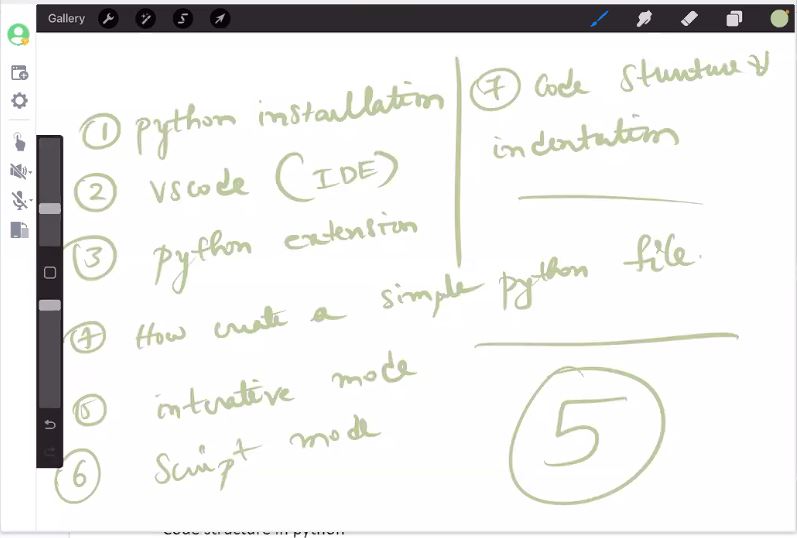 Gallery
① python installation
② vscode (IDE)
③ python extension
④ How create a simple python file.
⑤ interative mode
⑥ Script mode
⑦ Code structure &
indentation
5
Code structure in python